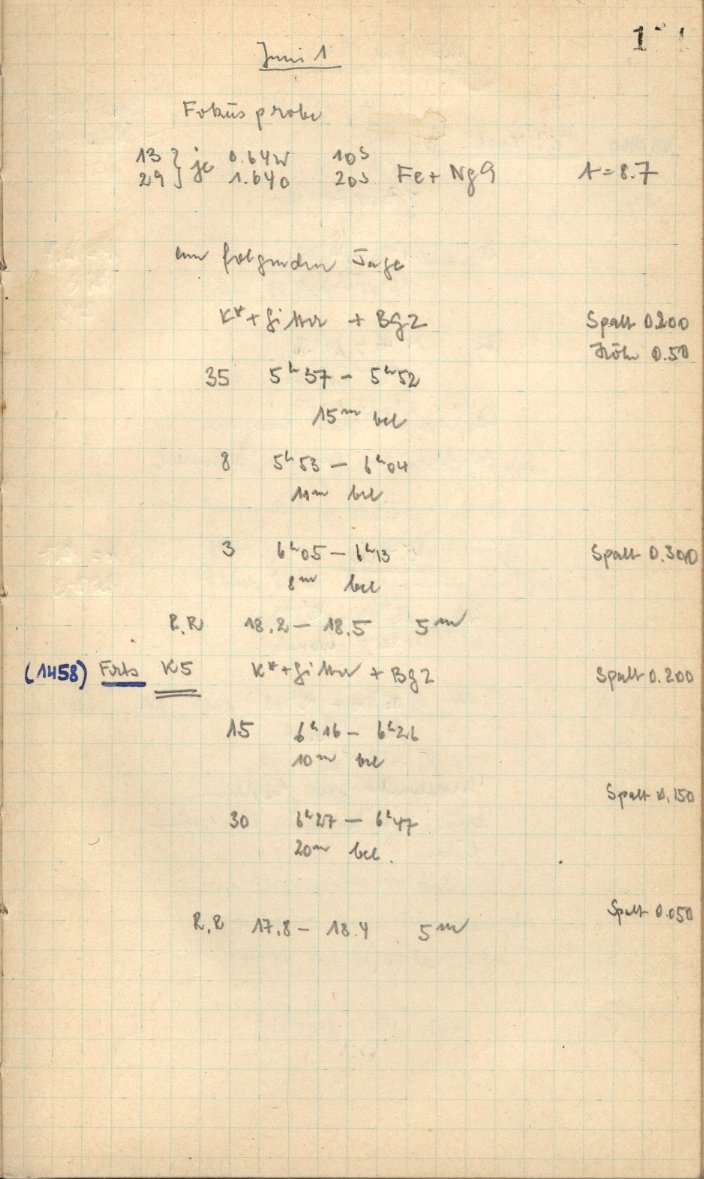 1
Juni 1
Fokusprobe
13 } je 0.64W 10s
29 1.640 20s Fe + Ng9 A = 8.7
am folgenden Tage
K* + Gitter + Bg2 Spalt 0.200
Höhe 0.50
35 5h37 – 5h52
15m bel
8 5h53 – 6h04
11m bel
3 6h05 – 6h13 Spalt 0.300
8m bel
R.R 18.2 – 18.5 5m
(1458) Forts K5 K* + Gitter + Bg2 Spalt 0.200
15 6h16 – 6h26
10m bel
Spalt 0.150
30 6h27 – 6h47
20m bel.
Spalt 0.050
R.R 17.8 – 18.4 5m